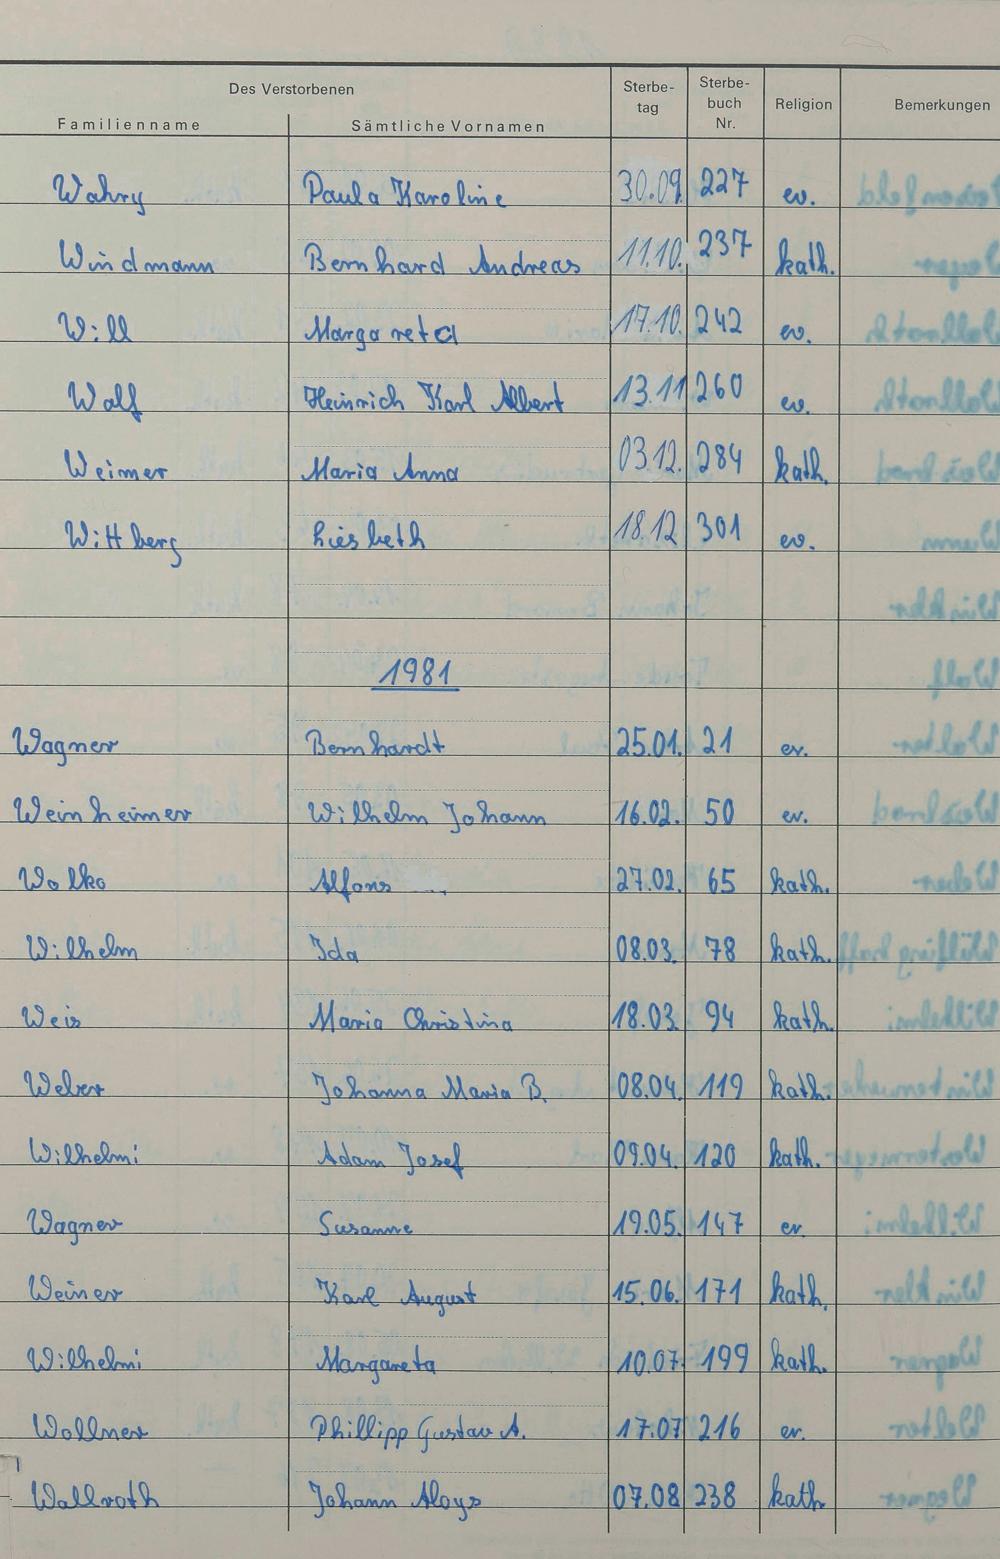 Des Verstorbenen
Familienname Sämtliche Vornamen Sterbe-tag Sterbe-buch Nr. Religion Bemerkungen
Wahry Paula Karoline 30.09. 227 ev.
Windmann Bernhard Andreas 11.10. 237 kath.
Will Margareta 17.10. 242 ev.
Wolf Heinrich Karl Albert 13.11 260 ev.
Weimer Maria Anna 03.12. 284 kath.
Wittberg Liesbeth 18.12 301 ev.
1981
Wagner Bernhardt 25.01. 21 ev.
Weinheimer Wilhelm Johann 16.02. 50 ev.
Wolko Alfons 27.02. 65 kath.
Wilhelm Ida 08.03. 78 kath.
Weis Maria Christina 18.03. 94 kath.
Weber Johanna Maria B. 08.04. 119 kath.
Wilhelmi Adam Josef 09.04. 120 kath.
Wagner Susanne 19.05. 147 ev.
Weiner Karl August 15.06. 171 kath.
Wilhelmi Margareta 10.07. 199 kath.
Wollner Phillipp Gustav A. 17.07 216 ev.
Wallroth Johann Aloys 07.08 238 kath